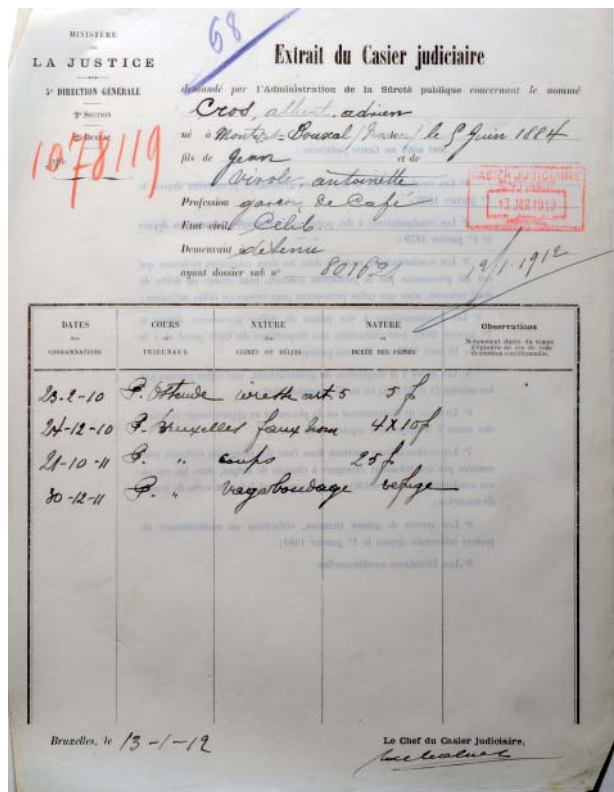 68
MINISTÈRE
DE
LA JUSTICE
5e DIRECTION GÉNÉRALE
2e SECTION
1078119
Extrait du Casier judiciaire
demandé par l'Administration de la Sûreté publique concernant le nommé
Cros, albert, adrien
né à le 5 Juin 1884
fils de Jean et de
Virole, antoinette
Profession garçon de Café
Etat civil Célib.
Demeurant détenu
ayant dossier sub no 801621
CASIER JUDICIAIRE
13 JAN 1912
12/1.1912
DATES
des
CONDAMNATIONS
COURS
et
TRIBUNAUX
NATURE
des
CRIMES OU DÉLITS
NATURE
et
DURÉE DES PEINES
Observations
23-2-10 P. Ostende art. 5 5 f
24-12-10 P. Bruxelles faux nom 4 x 10 f
21-10-11 P. " coups 25 f.
30-12-11 P. " vagabondage refuge
Bruxelles, le 13-1-12
Le Chef du Casier judiciaire,